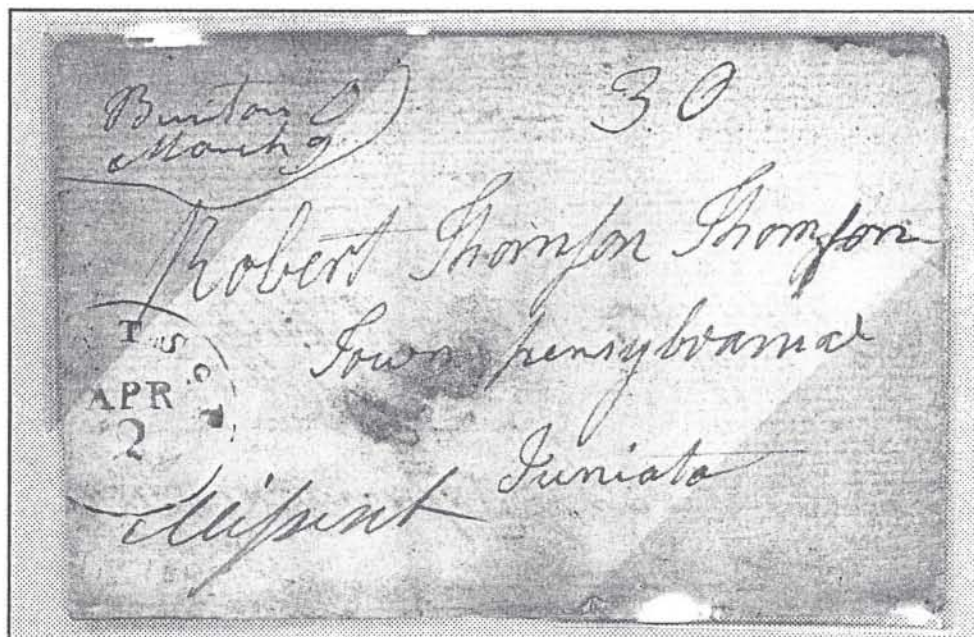 Burton O
March 9
30
Robert Thomson Thomson
Town pensylvania
APR
2
Juniata
Missent